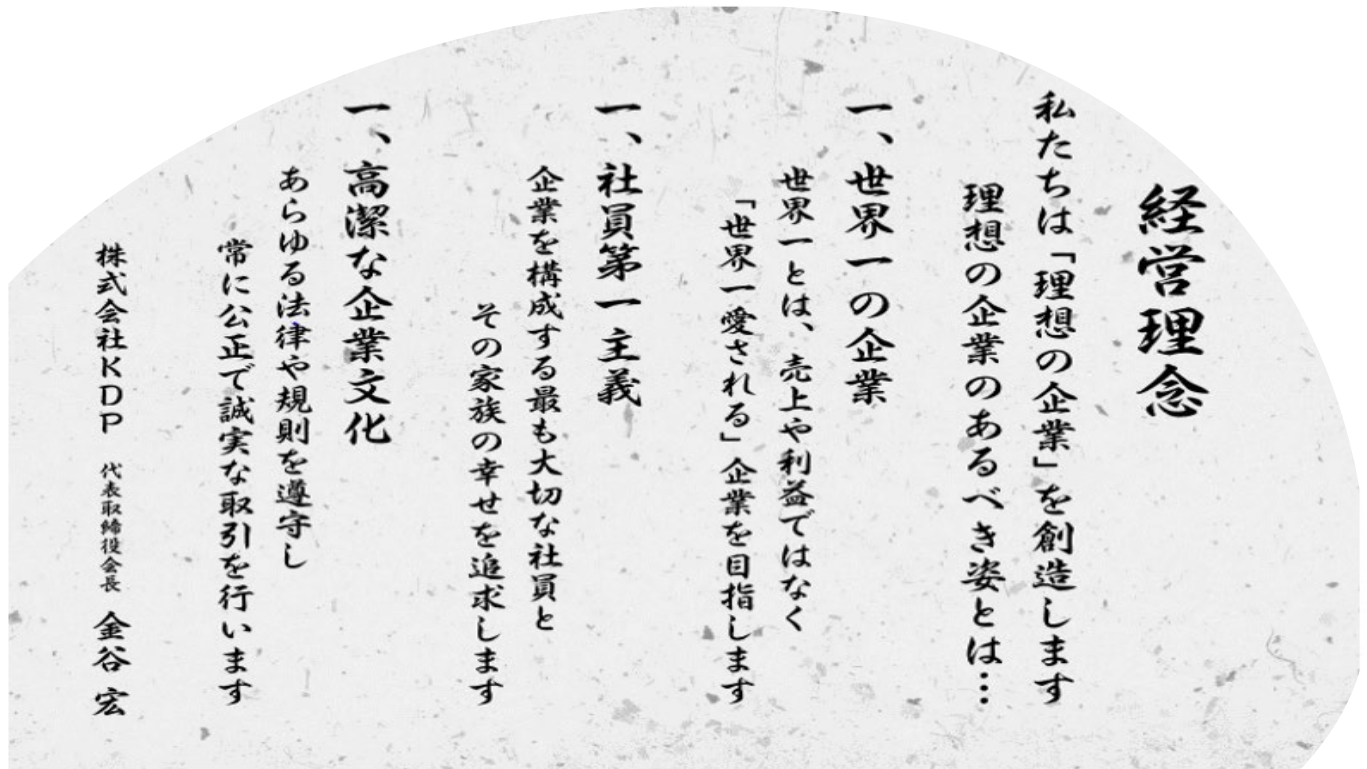 経営理念
私たちは「理想の企業」を創造します
理想の企業のあるべき姿とは…
一、世界一の企業
世界一とは、売上や利益ではなく
「世界一愛される」企業を目指します
一、社員第一主義
企業を構成する最も大切な社員と
その家族の幸せを追求します
一、高潔な企業文化
あらゆる法律や規則を遵守し
常に公正で誠実な取引を行います
株式会社KDP 代表取締役会長 金谷 宏